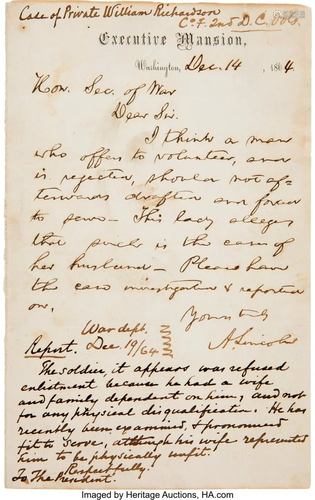 Case of Private William Richardson
Co. F. 2nd D.C. Vols.
Executive Mansion,
Washington, Dec. 14, 1864.
Hon. Sec. of War
Dear Sir.
I think a man
who offers to volunteer, and
is rejected, should not af-
terwards drafted and forced
to serve — This lady alleges
that such is the case of
her husband — Please have
the case investigated & reported
on.
Yours truly
A. Lincoln
War dept.
Report. Dec. 19/64
The soldier, it appears was refused
enlistment because he had a wife
and family dependent on him, and not
for any physical disqualification. He has
recently been examined, & pronounced
fit to serve, although his wife represented
him to be physically unfit.
Respectfully.
To The President.
Imaged by Heritage Auctions, HA.com